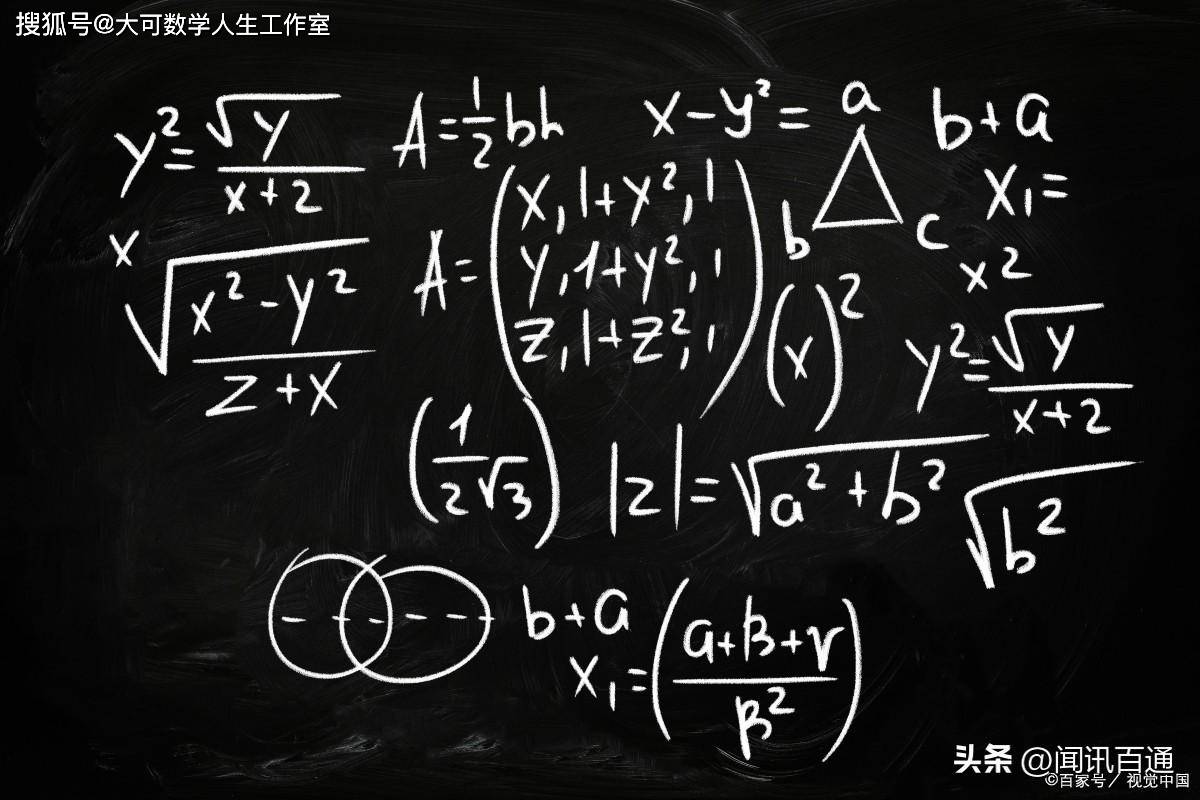 搜狐号@大可数学人生工作室
y² = √y / x+2
A = 1/2 bh
x - y² =
a
b
c
b + a
x₁ =
x
√ x² - y² / z + x
A = ( x, 1 + y², 1
y, 1 + y², 1
z, 1 + z², 1 )
x²
(x)²
y² = √y / x+2
( 1 / 2√3 )
|z| = √ a² + b²
√ b²
b + a
x₁ = ( a + β + γ / β² )
头条 @闻讯百通
©百家号／视觉中国